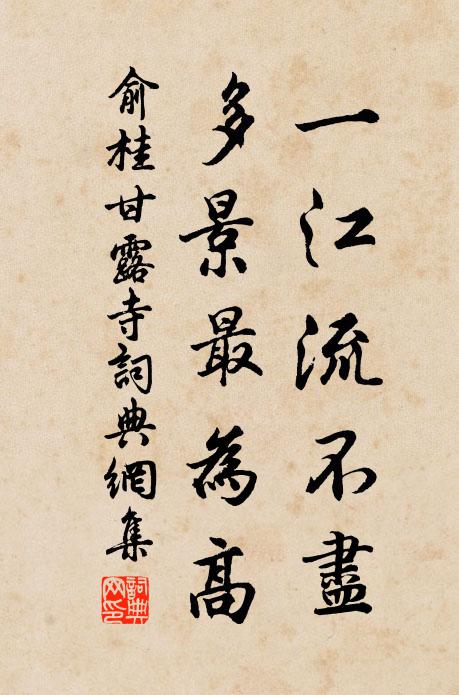 一江流不盡
多景最為高
俞桂甘露寺詞典網集
詞典網印